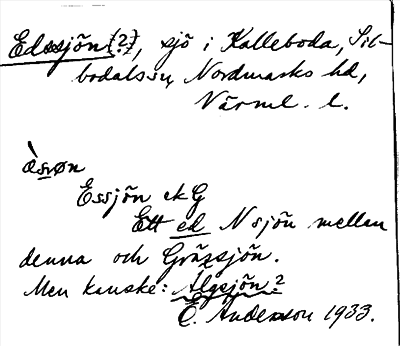 Edssjön(?), sjö i Kalleboda, Sil-
bodals sn, Nordmarks hd,
Värml. l.
Essjön ek G
Ett ed N sjön mellan
denna och Grässjön.
Men kanske: Älgsjön?
E. Andersson 1933.